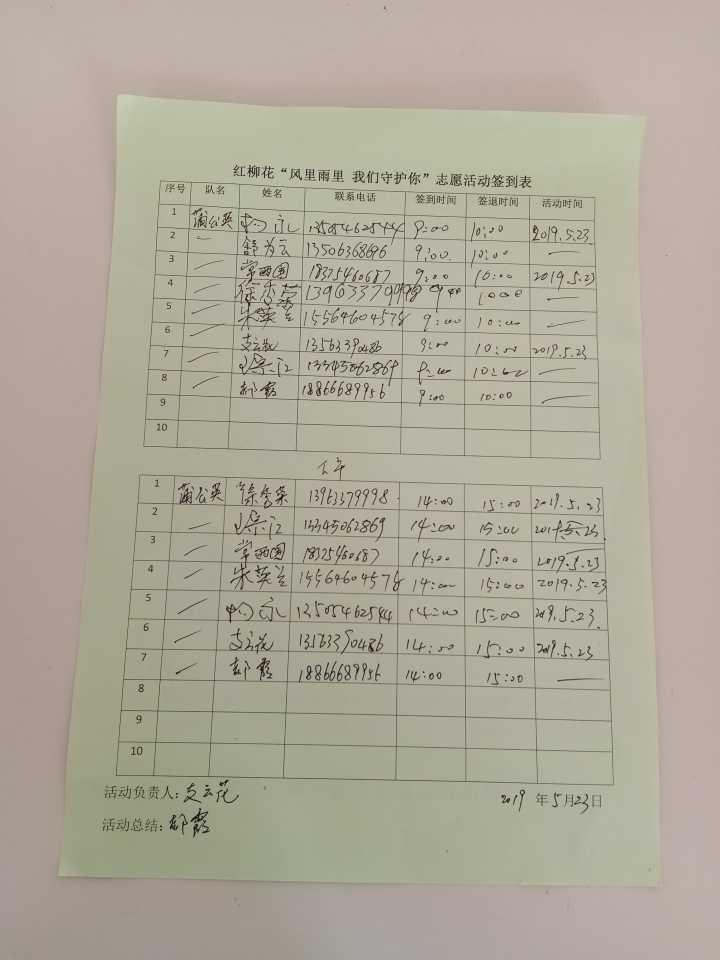 红柳花“风里雨里 我们守护你”志愿活动签到表
序号 队名 姓名 联系电话 签到时间 签退时间 活动时间
1 蒲公英 13505462544 9:00 10:00 2019.5.23
2 — 舒为云 13506368696 9:00 10:00 —
3 — 常西国 18325460687 9:00 10:00 2019.5.23
4 — 9:00 10:00 —
5 — 朱英兰 15564604578 9:00 10:00 —
6 — 支云花 13563390486 9:00 10:00 2019.5.23
7 — 梁江 13345062869 9:00 10:00 —
8 — 郝霞 18866689956 9:00 10:00 —
9
10
下午
1 蒲公英 徐秀荣 13963379998 14:00 15:00 2019.5.23
2 — 梁江 13345062869 14:00 15:00 2019.5.23
3 — 常西国 18325460687 14:00 15:00 2019.5.23
4 — 朱英兰 15564604578 14:00 15:00 2019.5.23
5 — 13505462544 14:00 15:00 2019.5.23
6 — 支云花 13563390486 14:00 15:00 2019.5.23
7 — 郝霞 18866689956 14:00 15:00 —
8
9
10
活动负责人：支云花 2019 年 5 月 23 日
活动总结：郝霞